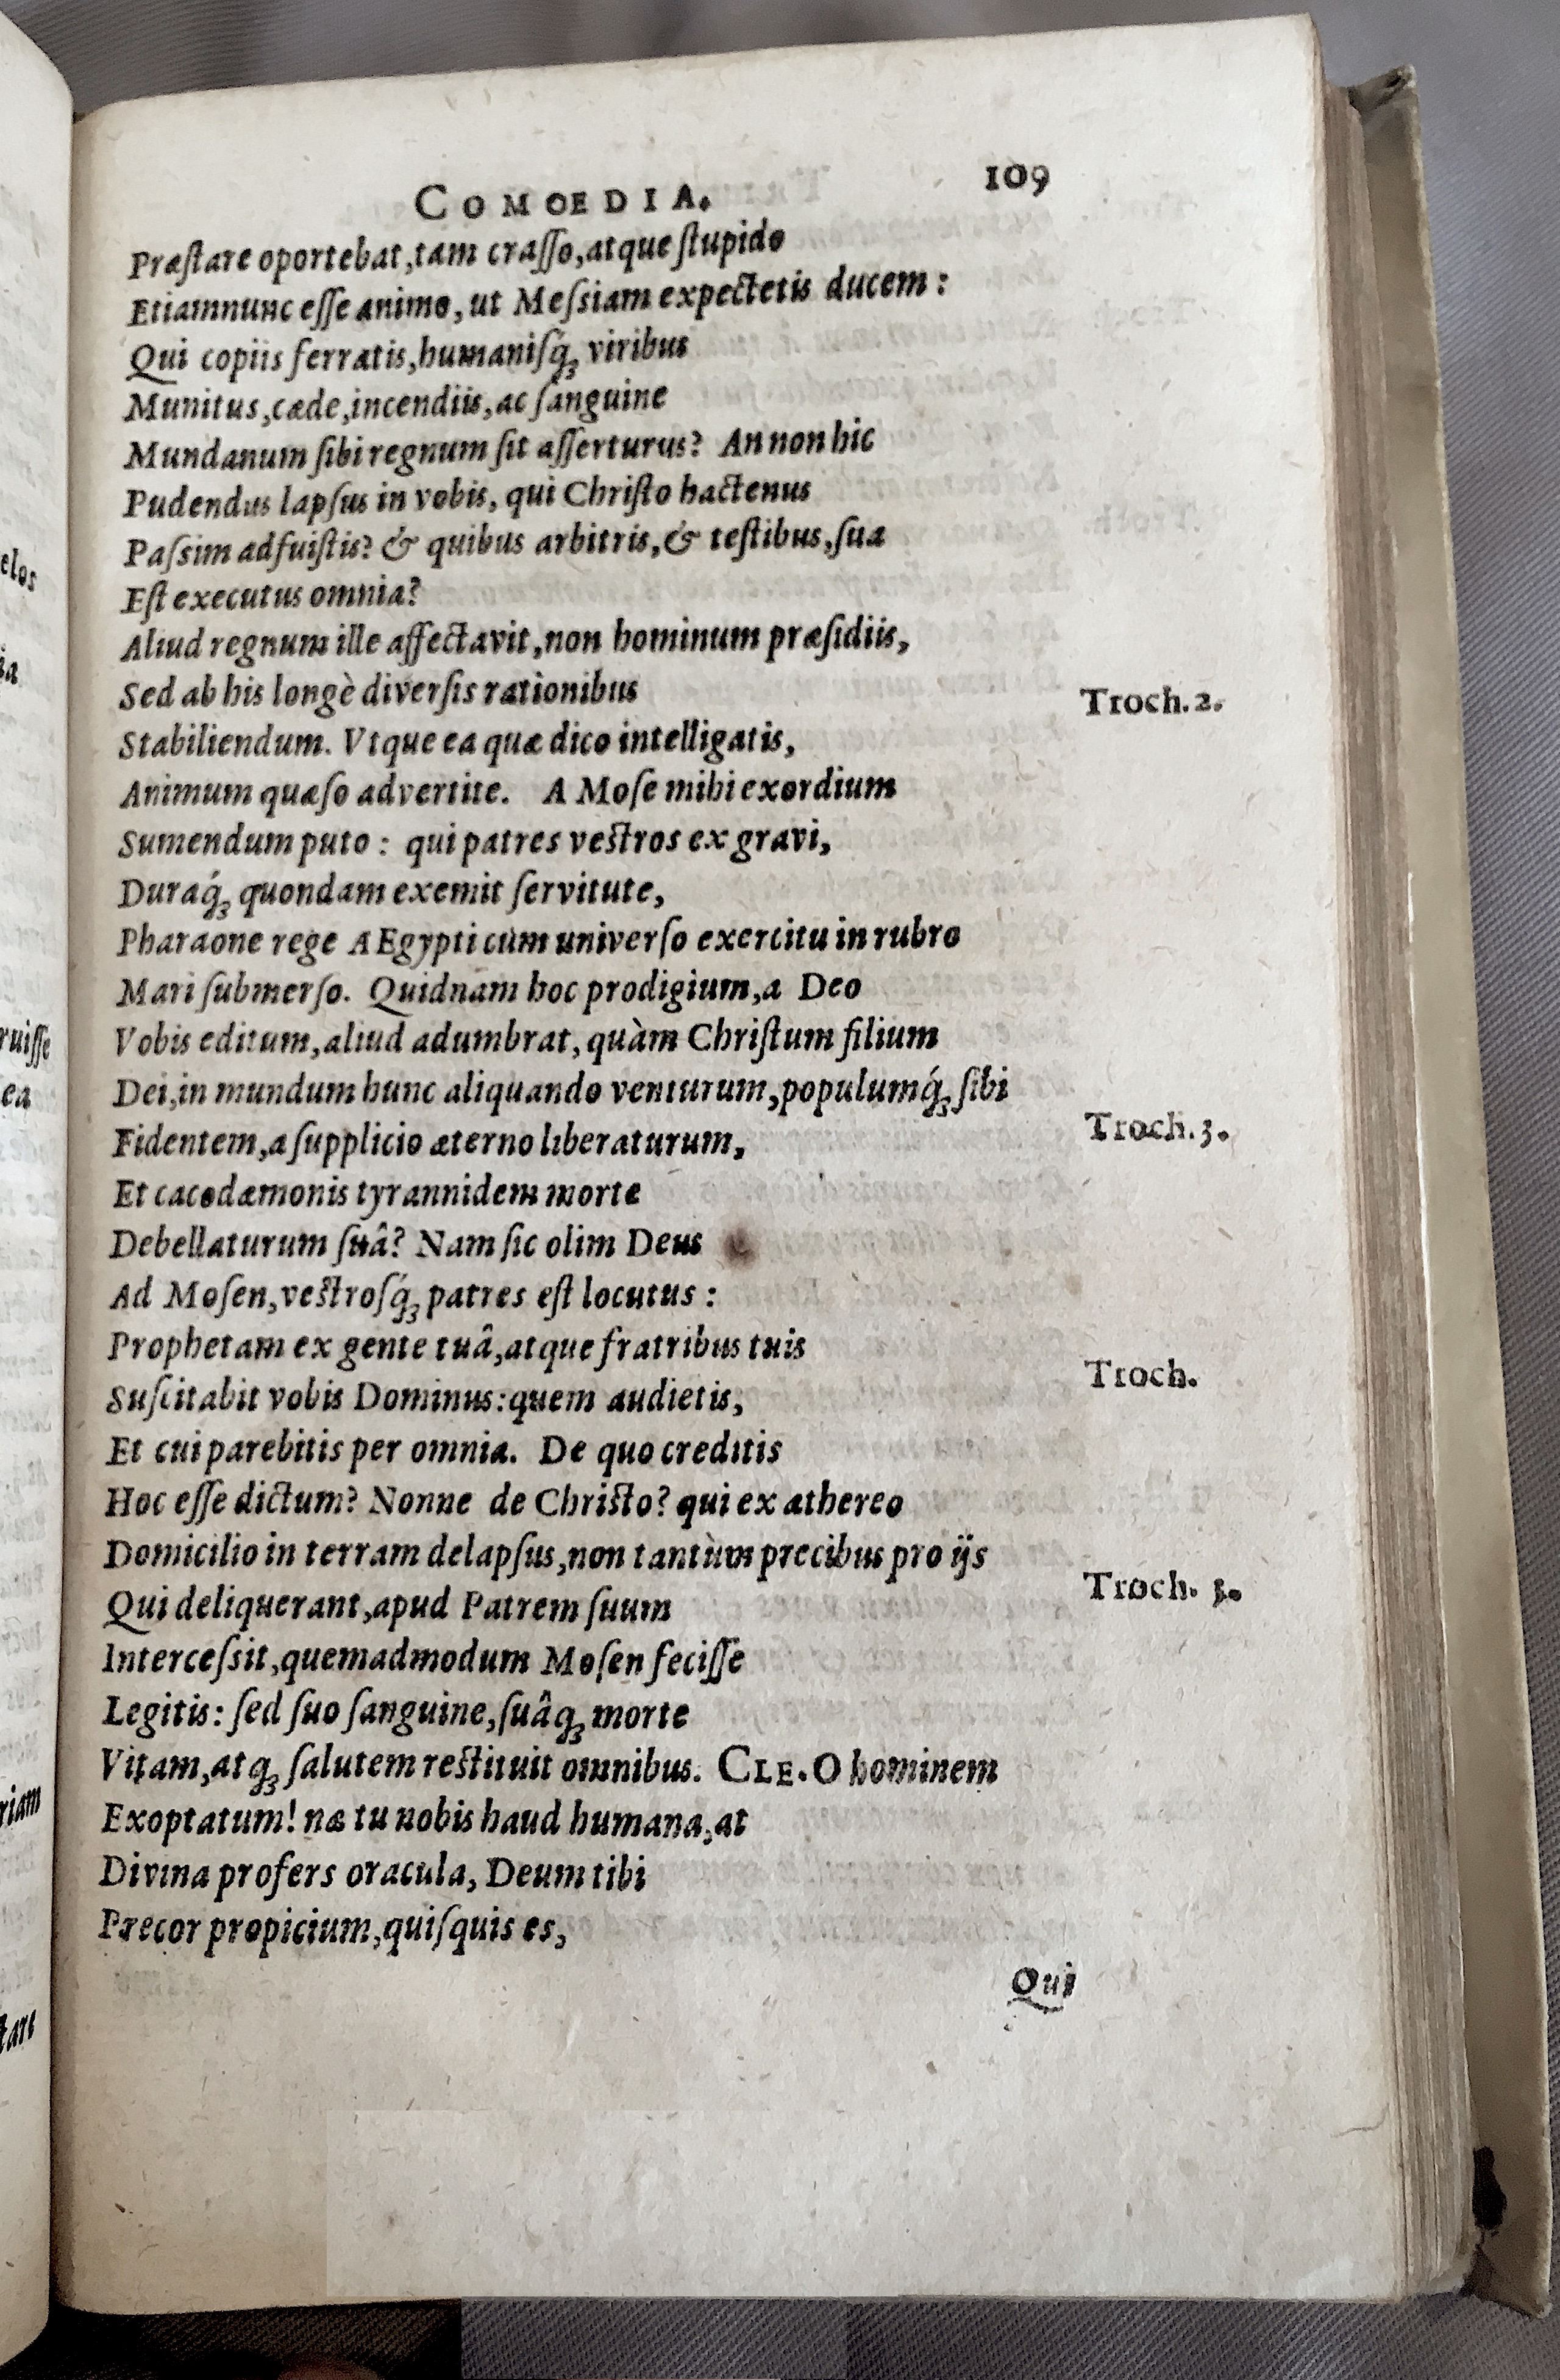 COMOEDIA. 109
Præſtare oportebat, tam craſſo, atque ſtupido
Etiamnunc eſſe animo, ut Meſsiam expectetis ducem:
Qui copiis ferratis, humaniſq́ꝫ viribus
Munitus, cæde, incendiis, ac ſanguine
Mundanum ſibi regnum ſit aſſerturus? An non hic
Pudendus lapſus in vobis, qui Chriſto hactenus
Paſsim adfuiſtis? & quibus arbitris, & teſtibus, ſua
Eſt executus omnia?
Aliud regnum ille affectavit, non hominum præſidiis,
Sed ab his longè diverſis rationibus
Troch. 2.
Stabiliendum. Vtque ea quæ dico intelligatis,
Animum quæſo advertite. A Moſe mihi exordium
Sumendum puto: qui patres veſtros ex gravi,
Duraq́ꝫ quondam exemit ſervitute,
Pharaone rege AEgypti cùm univerſo exercitu in rubro
Mari ſubmerſo. Quidnam hoc prodigium, a Deo
Vobis editum, aliud adumbrat, quàm Chriſtum filium
Dei, in mundum hunc aliquando venturum, populumq́ꝫ ſibi
Troch. 3.
Fidentem, a ſupplicio æterno liberaturum,
Et cacodæmonis tyrannidem morte
Debellaturum ſuâ? Nam ſic olim Deus
Ad Moſen, veſtroſq́ꝫ patres eſt locutus:
Prophetam ex gente tuâ, atque fratribus tuis
Troch.
Suſcitabit vobis Dominus: quem audietis,
Et cui parebitis per omnia. De quo creditis
Hoc eſſe dictum? Nonne de Chriſto? qui ex æthereo
Domicilio in terram delapſus, non tantùm precibus pro ijs
Troch. 3.
Qui deliquerant, apud Patrem ſuum
Interceſsit, quemadmodum Moſen feciſſe
Legitis: ſed ſuo ſanguine, ſuâqꝫ morte
Vitam, atqꝫ ſalutem reſtituit omnibus. CLE. O hominem
Exoptatum! næ tu nobis haud humana, at
Divina profers oracula, Deum tibi
Precor propicium, quiſquis es,
Qui
elos
ia
ruiſſe
ea
riam
tare